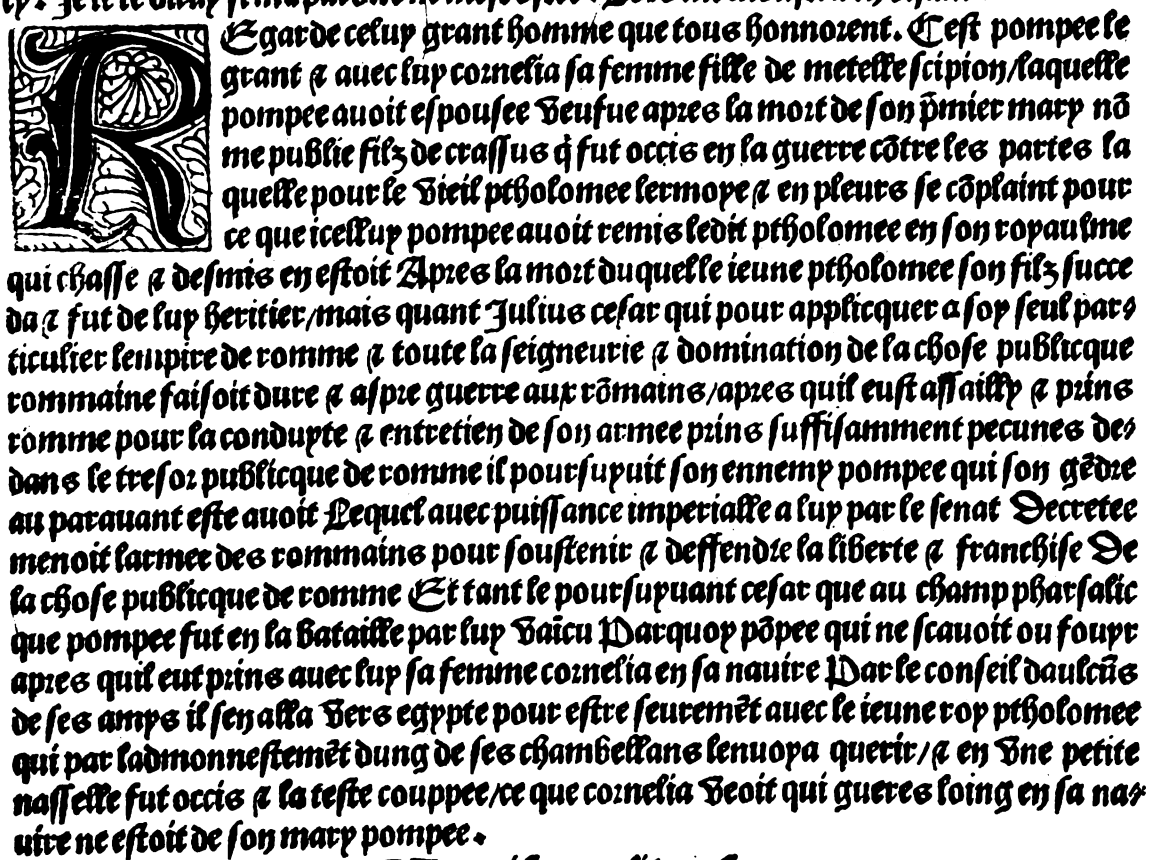 REgarde celuy grant homme que tous honnorent. Cest pompee le
grant ⁊ auec luy cornelia sa femme fille de metelle scipion/laquelle
pompee auoit espousee veufue apres la mort de son p̄mier mary nō
me publie filz de crassus q̄ fut occis en la guerre cōtre les partes la
quelle pour le vieil ptholomee lermoye ⁊ en pleurs se cōplaint pour
ce que icelluy pompee auoit remis ledit ptholomee en son royaulme
qui chasse ⁊ desmis en estoit Apres la mort duquel le ieune ptholomee son filz succe
da ⁊ fut de luy heritier/mais quant Julius cesar qui pour applicquer a soy seul par-
ticulier lempire de romme ⁊ toute la seigneurie ⁊ domination de la chose publicque
rommaine faisoit dure ⁊ aspre guerre aux rōmains/apres quil eust assailly ⁊ prins
romme pour la conduyte ⁊ entretien de son armee prins suffisamment pecunes de-
dans le tresor publicque de romme il poursuyuit son ennemy pompee qui son gēdre
au parauant este auoit Lequel auec puissance imperialle a luy par le senat Decretee
menoit larmee des rommains pour soustenir ⁊ deffendre la liberte ⁊ franchise De
la chose publicque de romme Et tant le poursuyuant cesar que au champ pharsalic
que pompee fut en la bataille par luy vaīcu Parquoy pōpee qui ne scauoit ou fouyr
apres quil eut prins auec luy sa femme cornelia en sa nauire Par le conseil daulcūs
de ses amys il sen alla vers egypte pour estre seuremēt auec le ieune roy ptholomee
qui par ladmonnestemēt dung de ses chambellans lenuoya querir/⁊ en vne petite
nasselle fut occis ⁊ la teste couppee/ce que cornelia veoit qui gueres loing en sa na-
uire ne estoit de son mary pompee.